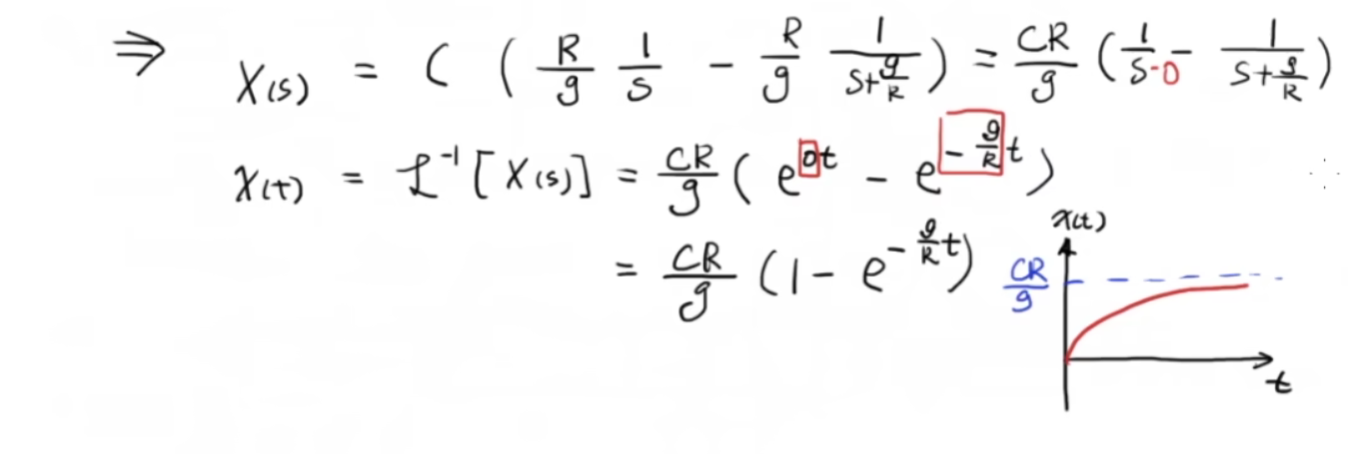 ⇒ X(s) = C ( R/g 1/s - R/g 1/(s+g/R) ) = CR/g ( 1/(s-0) - 1/(s+g/R) )
x(t) = ℒ⁻¹[X(s)] = CR/g ( e^(0t) - e^(-g/R t) )
= CR/g (1 - e^(-g/R t))
x(t)
CR/g
t